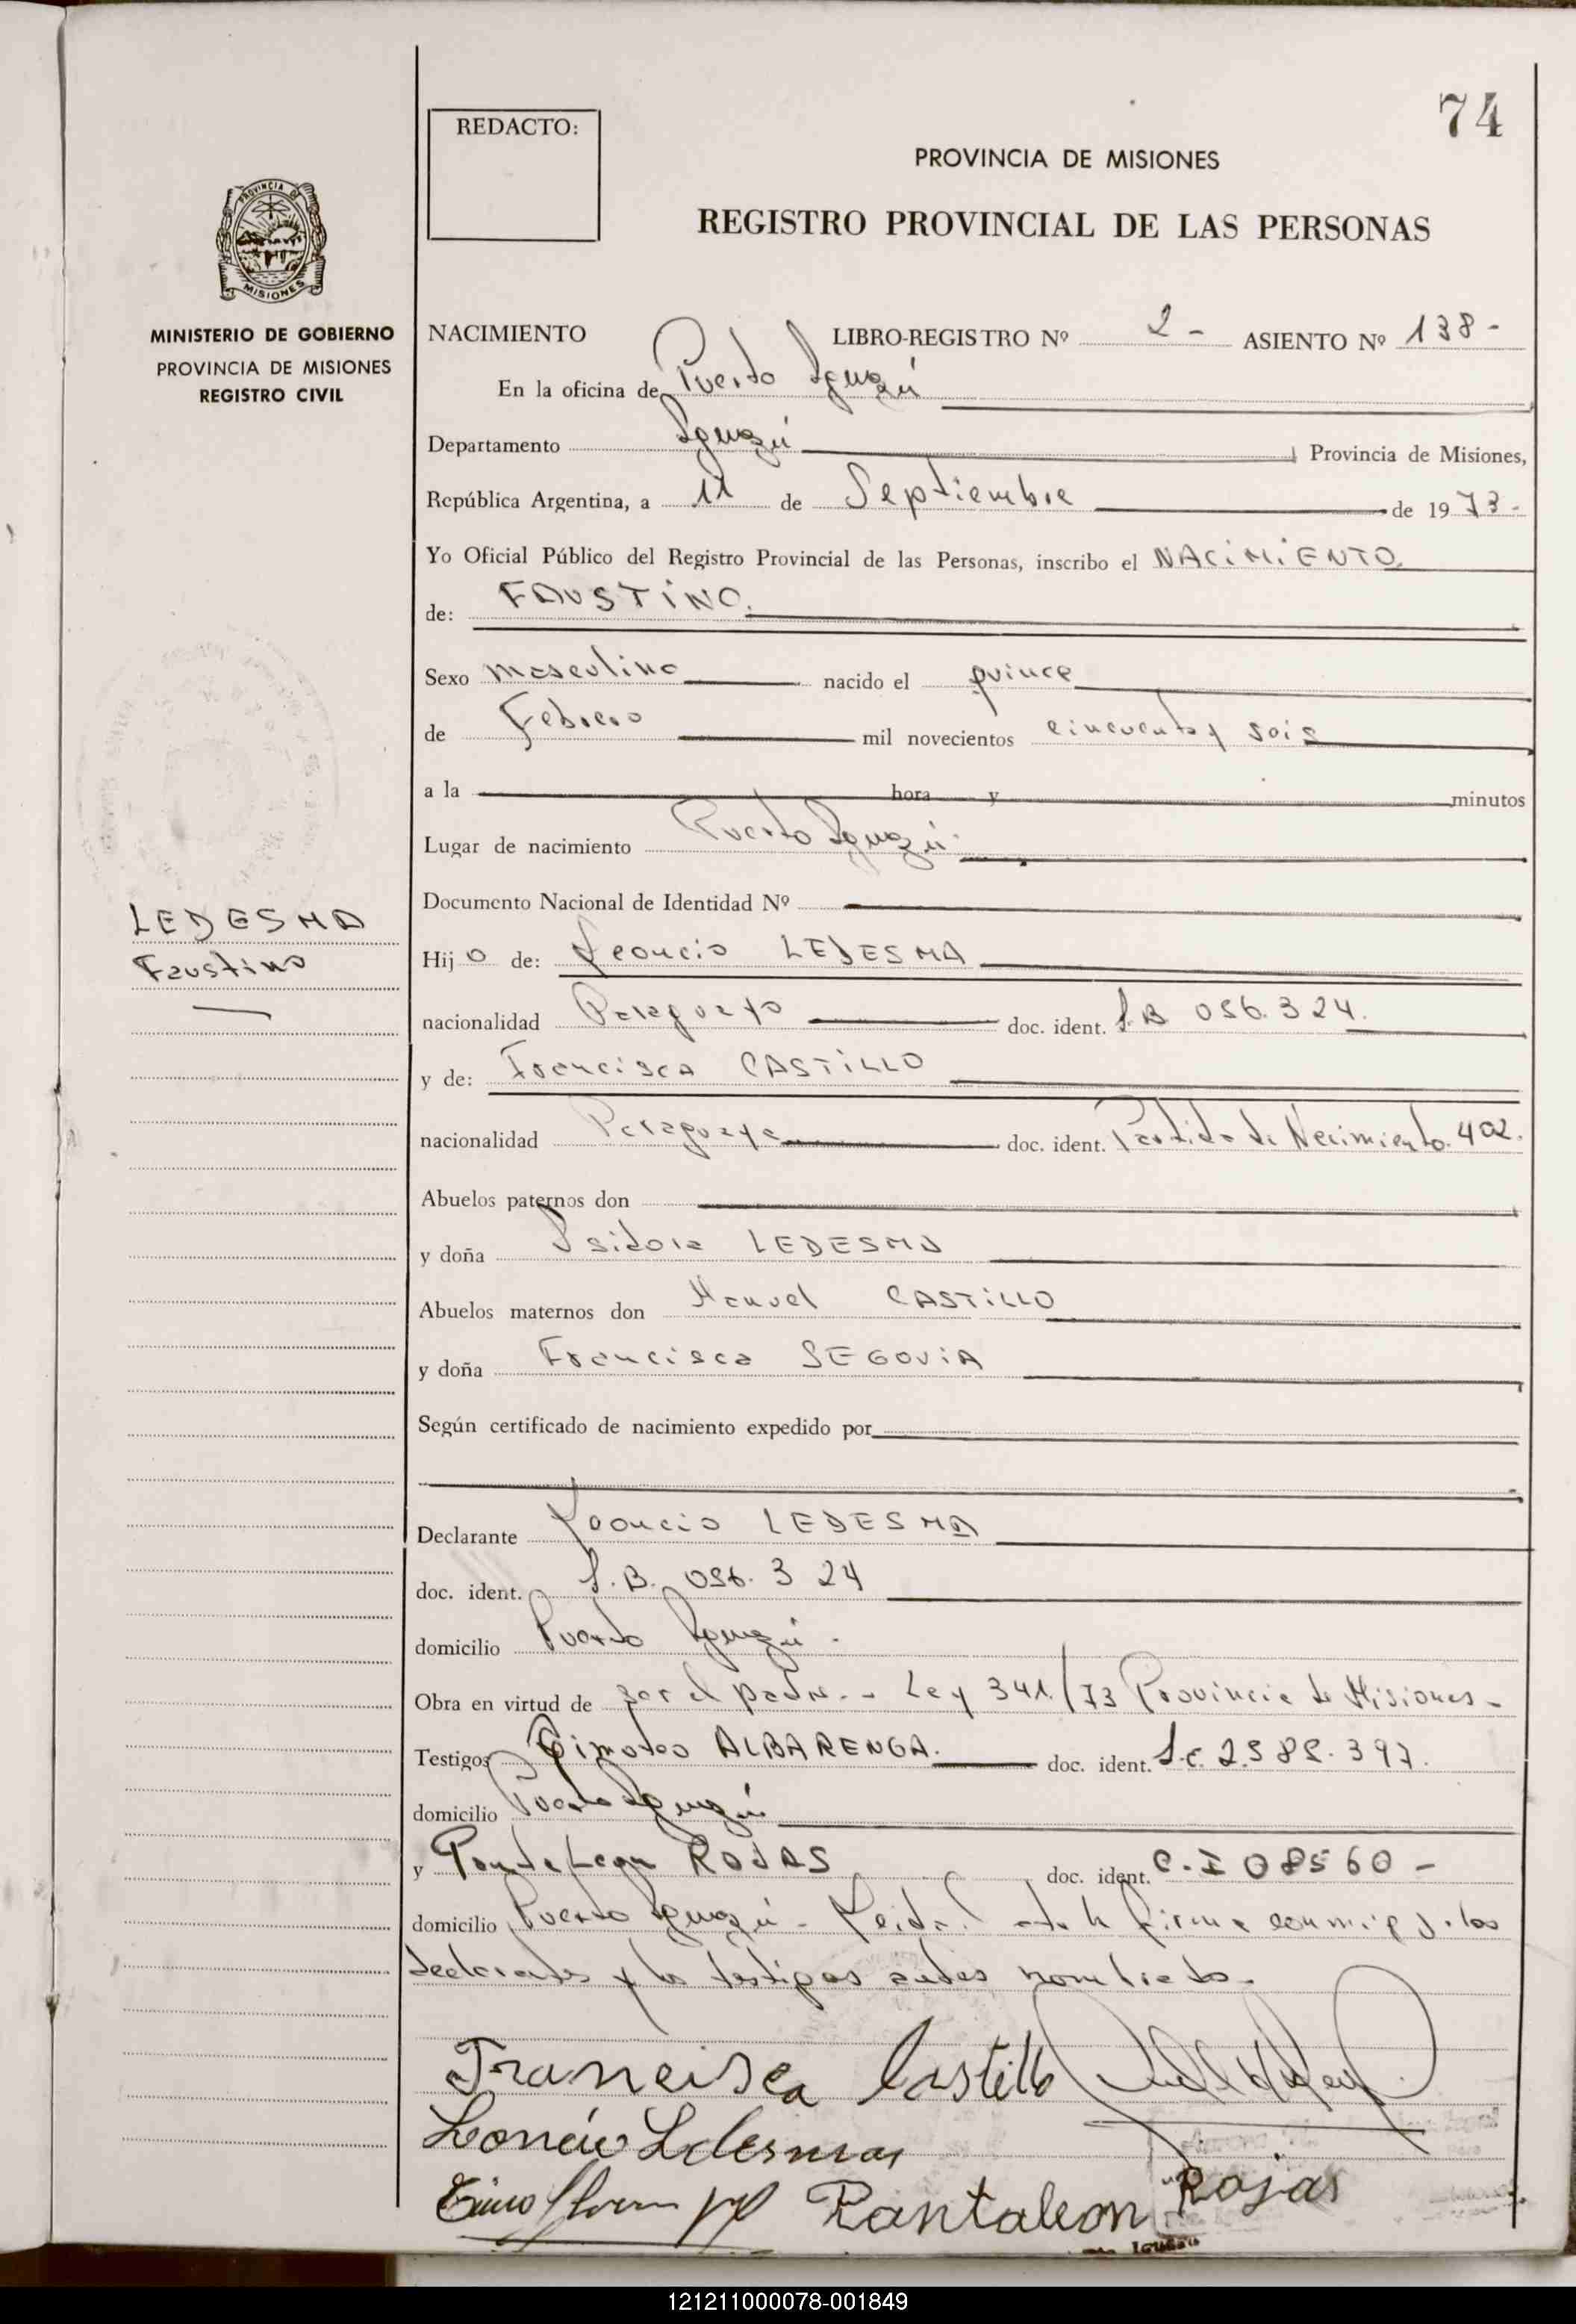 74
REDACTO:
PROVINCIA DE MISIONES
REGISTRO PROVINCIAL DE LAS PERSONAS
PROVINCIA DE
MISIONES
MINISTERIO DE GOBIERNO
PROVINCIA DE MISIONES
REGISTRO CIVIL
NACIMIENTO LIBRO-REGISTRO Nº 2 - ASIENTO Nº 138 -
En la oficina de Puerto Iguazú
Departamento Iguazú Provincia de Misiones,
República Argentina, a 11 de Septiembre de 1973 -
Yo Oficial Público del Registro Provincial de las Personas, inscribo el NACIMIENTO
de: FAUSTINO.
Sexo masculino nacido el quince
de Febrero mil novecientos cincuenta y seis
a la hora y minutos
Lugar de nacimiento Puerto Iguazú.
Documento Nacional de Identidad Nº
LEDESMA
Faustino
Hijo de: Leoncio LEDESMA
nacionalidad Paraguayo doc. ident. I.B 056.324.
y de: Francisca CASTILLO
nacionalidad Paraguaya doc. ident. Partida de Nacimiento. 402.
Abuelos paternos don
y doña Isidora LEDESMA
Abuelos maternos don Manuel CASTILLO
y doña Francisca SEGOVIA
Según certificado de nacimiento expedido por
Declarante Leoncio LEDESMA
doc. ident. I.B. 056.324
domicilio Puerto Iguazú -
Obra en virtud de ser el padre. - Ley 341/73 Provincia de Misiones -
Testigos Timoteo ALBARENGA. doc. ident. 397.
domicilio Puerto Iguazú
y Pantaleon ROJAS doc. ident. C.I 08560 -
domicilio Puerto Iguazú - Leida el acta la firma conmigo los
declarantes y los testigos antes nombrados.
Francisca Castillo
Loncio Ledesmas
Pantaleon Rojas
121211000078-001849